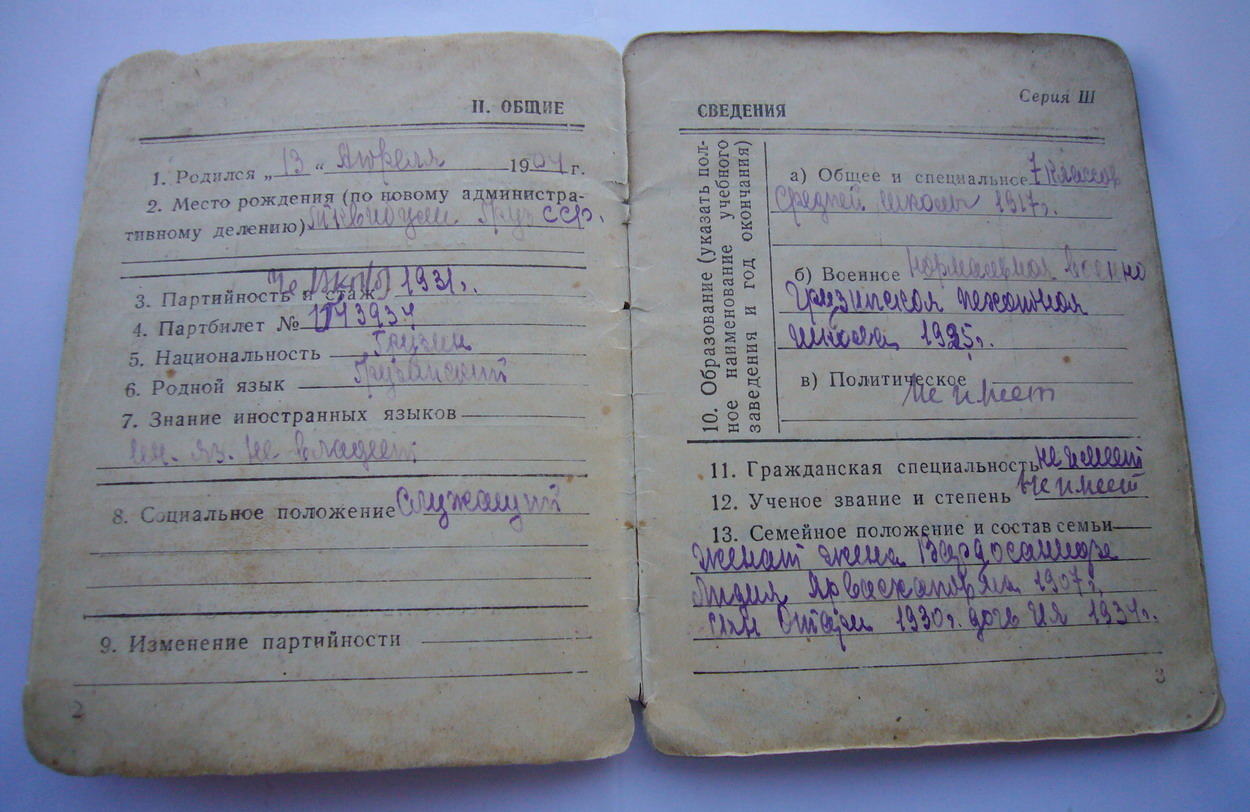 II. ОБЩИЕ
1. Родился „13“ Апреля 1904 г.
2. Место рождения (по новому администра-
тивному делению) Груз ССР.
3. Партийность и стаж Чл ВКП(б) 1931 г.
4. Партбилет №
5. Национальность Грузин
6. Родной язык Грузинский
7. Знание иностранных языков
ин. яз. не владеет
8. Социальное положение Служащий
9. Изменение партийности
2
СВЕДЕНИЯ
Серия III
10. Образование (указать пол-
ное наименование учебного
заведения и год окончания)
а) Общее и специальное 7 классов
средней школы 1917 г.
б) Военное нормальная военно
Грузинская пехотная
школа 1925 г.
в) Политическое
Не имеет
11. Гражданская специальность не имеет
12. Ученое звание и степень не имеет
13. Семейное положение и состав семьи
женат жена
1907 г.
сын Отари 1930 г. дочь Ия 1934 г.
3